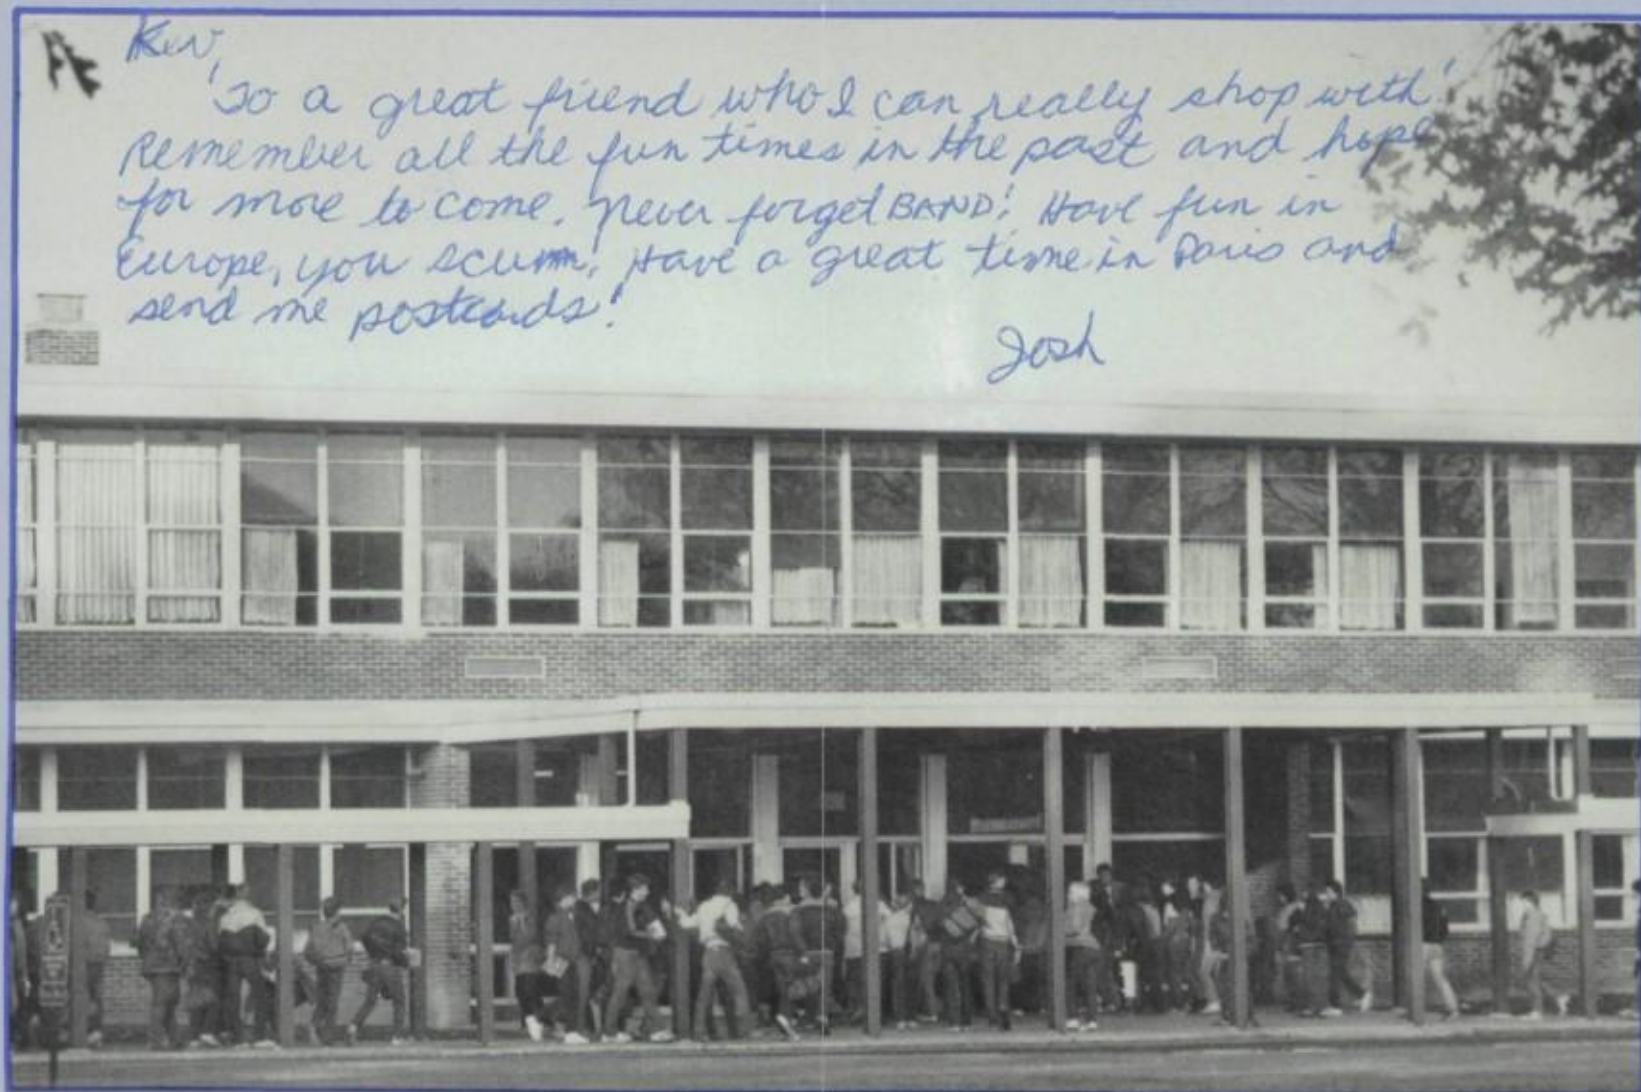 Kev,
To a great friend who I can really shop with!
Remember all the fun times in the past and hope
for more to come. Never forget BAND! Have fun in
Europe, you scumm! Have a great time in Paris and
send me postcards!
Josh